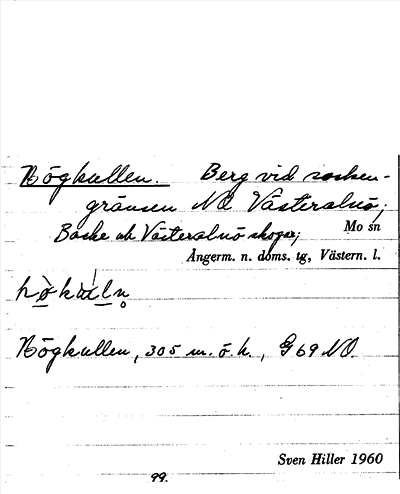 Högkullen. Berg vid socken-
gränsen NO Västeralnö;
Backe och Västeralnö skogar; Mo sn
Ångerm. n. doms. tg, Västern. l.
Högkullen, 305 m. ö. h., G 69 NO.
Sven Hiller 1960
99.